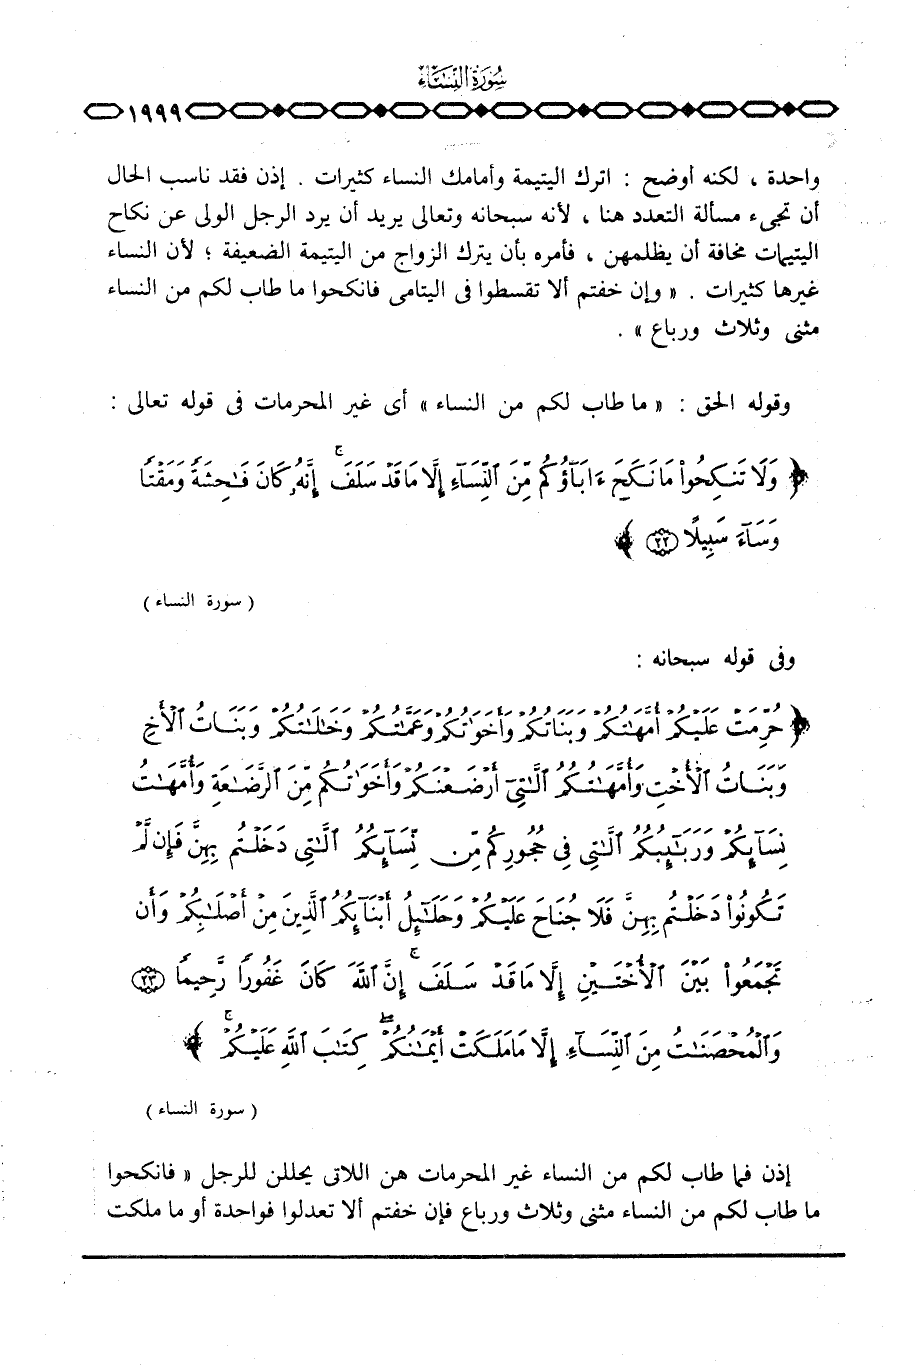 سُورَةُ النِّسَاءِ
١٩٩٩
واحدة ، لكنه أوضح : اترك اليتيمة وأمامك النساء كثيرات . إذن فقد ناسب الحال
أن تجىء مسألة التعدد هنا ، لأنه سبحانه وتعالى يريد أن يرد الرجل الولى عن نكاح
اليتيمات مخافة أن يظلمهن ، فأمره بأن يترك الزواج من اليتيمة الضعيفة ؛ لأن النساء
غيرها كثيرات . « وإن خفتم ألا تقسطوا فى اليتامى فانكحوا ما طاب لكم من النساء
مثنى وثلاث ورباع » .
وقوله الحق : « ما طاب لكم من النساء » أى غير المحرمات فى قوله تعالى :
﴿ وَلَا تَنكِحُوا۟ مَا نَكَحَ ءَابَآؤُكُم مِّنَ ٱلنِّسَآءِ إِلَّا مَا قَدْ سَلَفَ ۚ إِنَّهُۥ كَانَ فَـٰحِشَةً وَمَقْتًا
وَسَآءَ سَبِيلًا ۝٢٢ ﴾
( سورة النساء )
وفى قوله سبحانه :
﴿ حُرِّمَتْ عَلَيْكُمْ أُمَّهَـٰتُكُمْ وَبَنَاتُكُمْ وَأَخَوَٰتُكُمْ وَعَمَّـٰتُكُمْ وَخَـٰلَـٰتُكُمْ وَبَنَاتُ ٱلْأَخِ
وَبَنَاتُ ٱلْأُخْتِ وَأُمَّهَـٰتُكُمُ ٱلَّـٰتِىٓ أَرْضَعْنَكُمْ وَأَخَوَٰتُكُم مِّنَ ٱلرَّضَـٰعَةِ وَأُمَّهَـٰتُ
نِسَآئِكُمْ وَرَبَـٰٓئِبُكُمُ ٱلَّـٰتِى فِى حُجُورِكُم مِّن نِّسَآئِكُمُ ٱلَّـٰتِى دَخَلْتُم بِهِنَّ فَإِن لَّمْ
تَكُونُوا۟ دَخَلْتُم بِهِنَّ فَلَا جُنَاحَ عَلَيْكُمْ وَحَلَـٰٓئِلُ أَبْنَآئِكُمُ ٱلَّذِينَ مِنْ أَصْلَـٰبِكُمْ وَأَن
تَجْمَعُوا۟ بَيْنَ ٱلْأُخْتَيْنِ إِلَّا مَا قَدْ سَلَفَ ۚ إِنَّ ٱللَّهَ كَانَ غَفُورًا رَّحِيمًا ۝٢٣
وَٱلْمُحْصَنَـٰتُ مِنَ ٱلنِّسَآءِ إِلَّا مَا مَلَكَتْ أَيْمَـٰنُكُمْ ۖ كِتَـٰبَ ٱللَّهِ عَلَيْكُمْ ۚ ﴾
( سورة النساء )
إذن فما طاب لكم من النساء غير المحرمات هن اللاتى يحللن للرجل « فانكحوا
ما طاب لكم من النساء مثنى وثلاث ورباع فإن خفتم ألا تعدلوا فواحدة أو ما ملكت